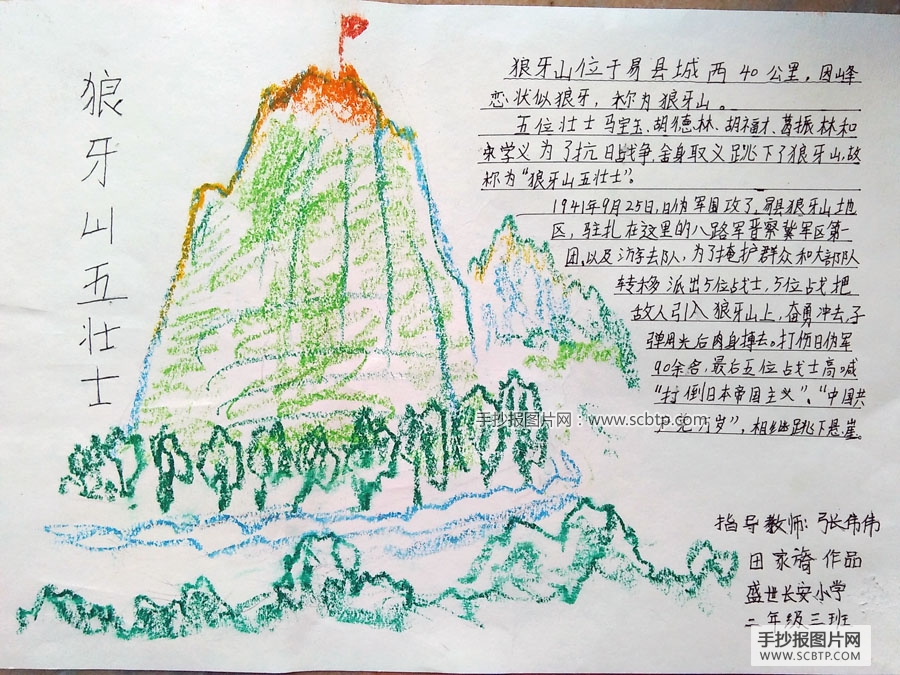 狼牙山五壮士
狼牙山位于易县城西40公里，因峰
恋状似狼牙，称为狼牙山。
五位壮士马宝玉、胡德林、胡福才、葛振林和
宋学义为了抗日战争,舍身取义跳下了狼牙山,故
称为“狼牙山五壮士”。
1941年9月25日,日伪军围攻了,易县狼牙山地
区,驻扎在这里的八路军晋察冀军区第一
团,以及游击队,为了掩护群众和大部队
转移派出5位战士,5位战把
敌人引入狼牙山上,奋勇冲去,子
弹用光后肉身搏击。打伤日伪军
90余名,最后五位战士高喊
“打倒日本帝国主义”、“中国共
产党万岁”,相继跳下悬崖。
手抄报图片网：www.scbtp.com
指导教师:张伟伟
田家 作品
盛世长安小学
二年级三班
手抄报图片网
WWW.SCBTP.COM